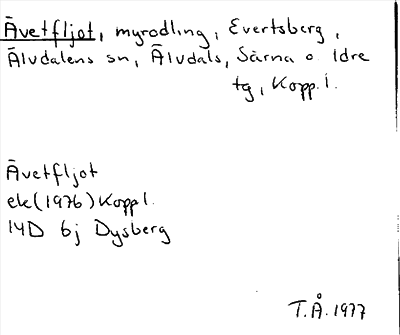 Āvetfljot, myrodling, Evertsberg,
Älvdalens sn, Älvdals, Särna o Idre
tg, Kopp.l.
Āvetfljot
ek(1976) Koppl.
14D 6j Dysberg
T.Å. 1977